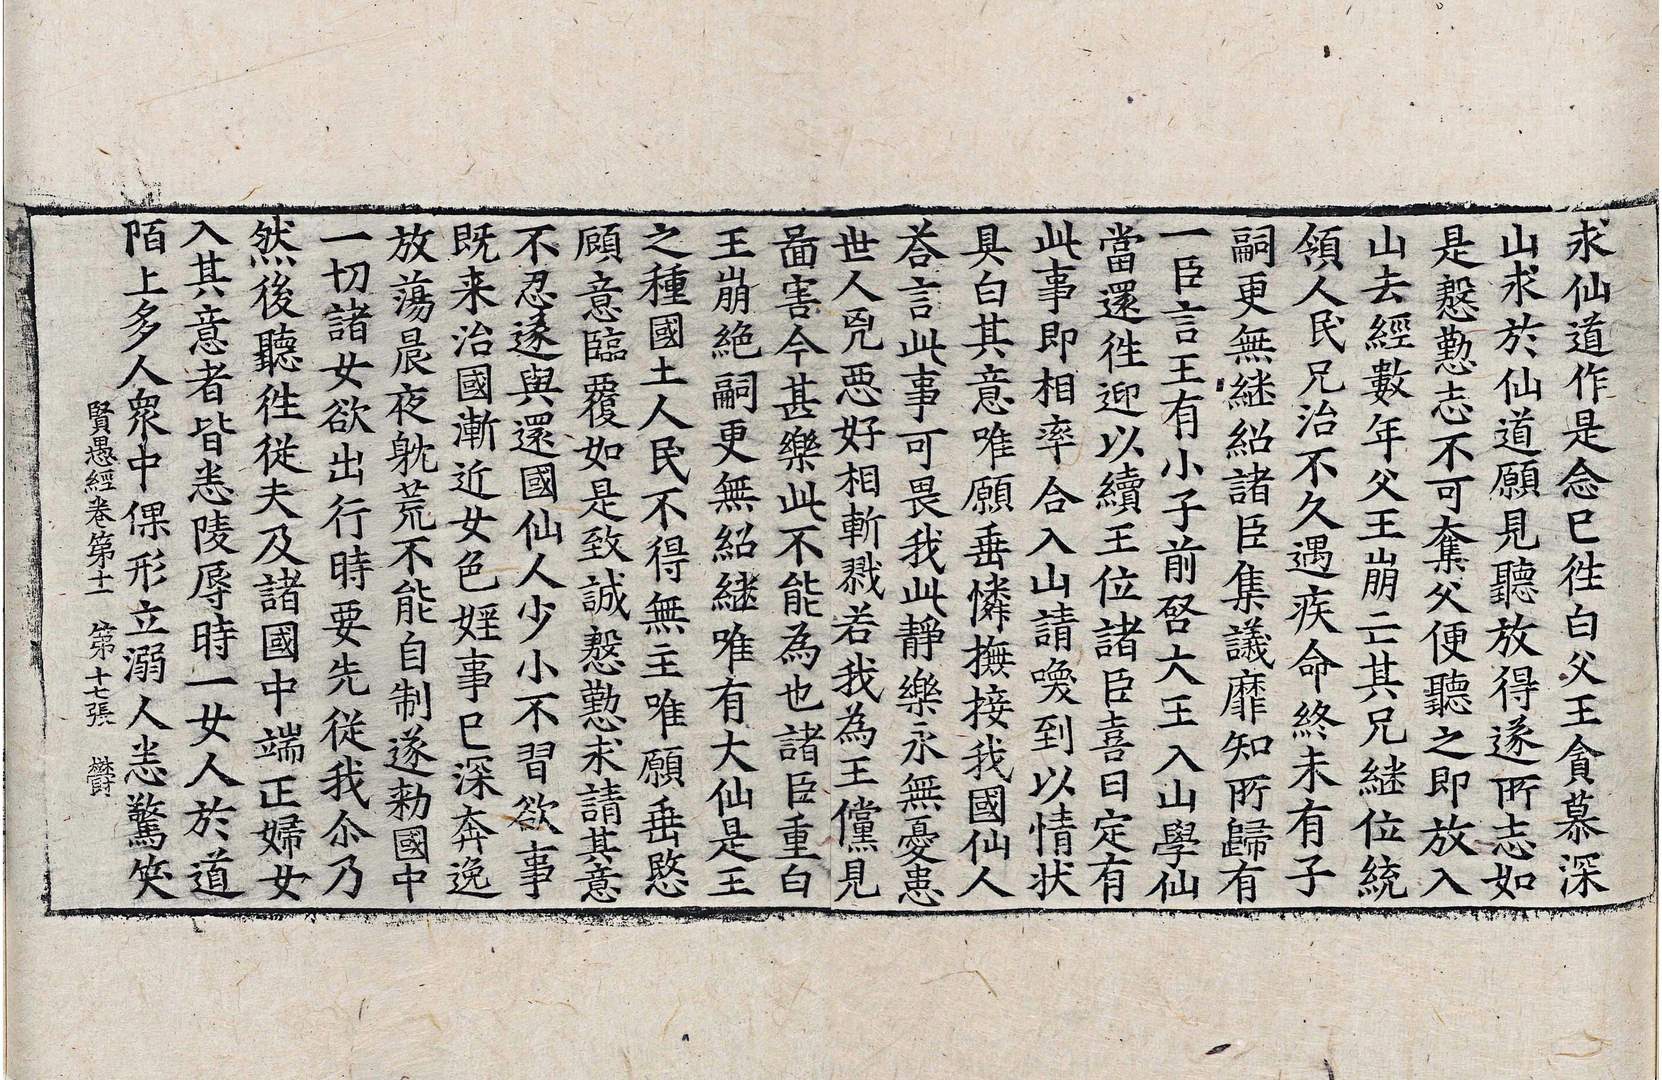 求仙道作是念已徃白父王貪慕深
山求於仙道願見聽放得遂所志如
是慇懃志不可奪父便聽之即放入
山去經數年父王崩亡其兄継位統
領人民兄治不久遇疾命終未有子
嗣更無継紹諸臣集議靡知所歸有
一臣言王有小子前啓大王入山學仙
當還徃迎以續王位諸臣喜曰定有
此事即相率合入山請喚到以情狀
具白其意唯願垂憐撫接我國仙人
荅言此事可畏我此静樂永無憂患
世人兇惡好相斬戮若我為王儻見
啚害今甚樂此不能為也諸臣重白
王崩絶嗣更無紹継唯有大仙是王
之種國土人民不得無主唯願垂愍
頋意臨覆如是致誠慇懃求請其意
不忍遂與還國仙人少小不習欲事
既来治國漸近女色婬事已深奔逸
放蕩晨夜躭荒不能自制遂勑國中
一切諸女欲出行時要先従我尒乃
然後聽徃従夫及諸國中端正婦女
入其意者皆恙陵辱時一女人於道
陌上多人衆中倮形立溺人恙驚笑
賢愚經卷第十一 第十七張 欝